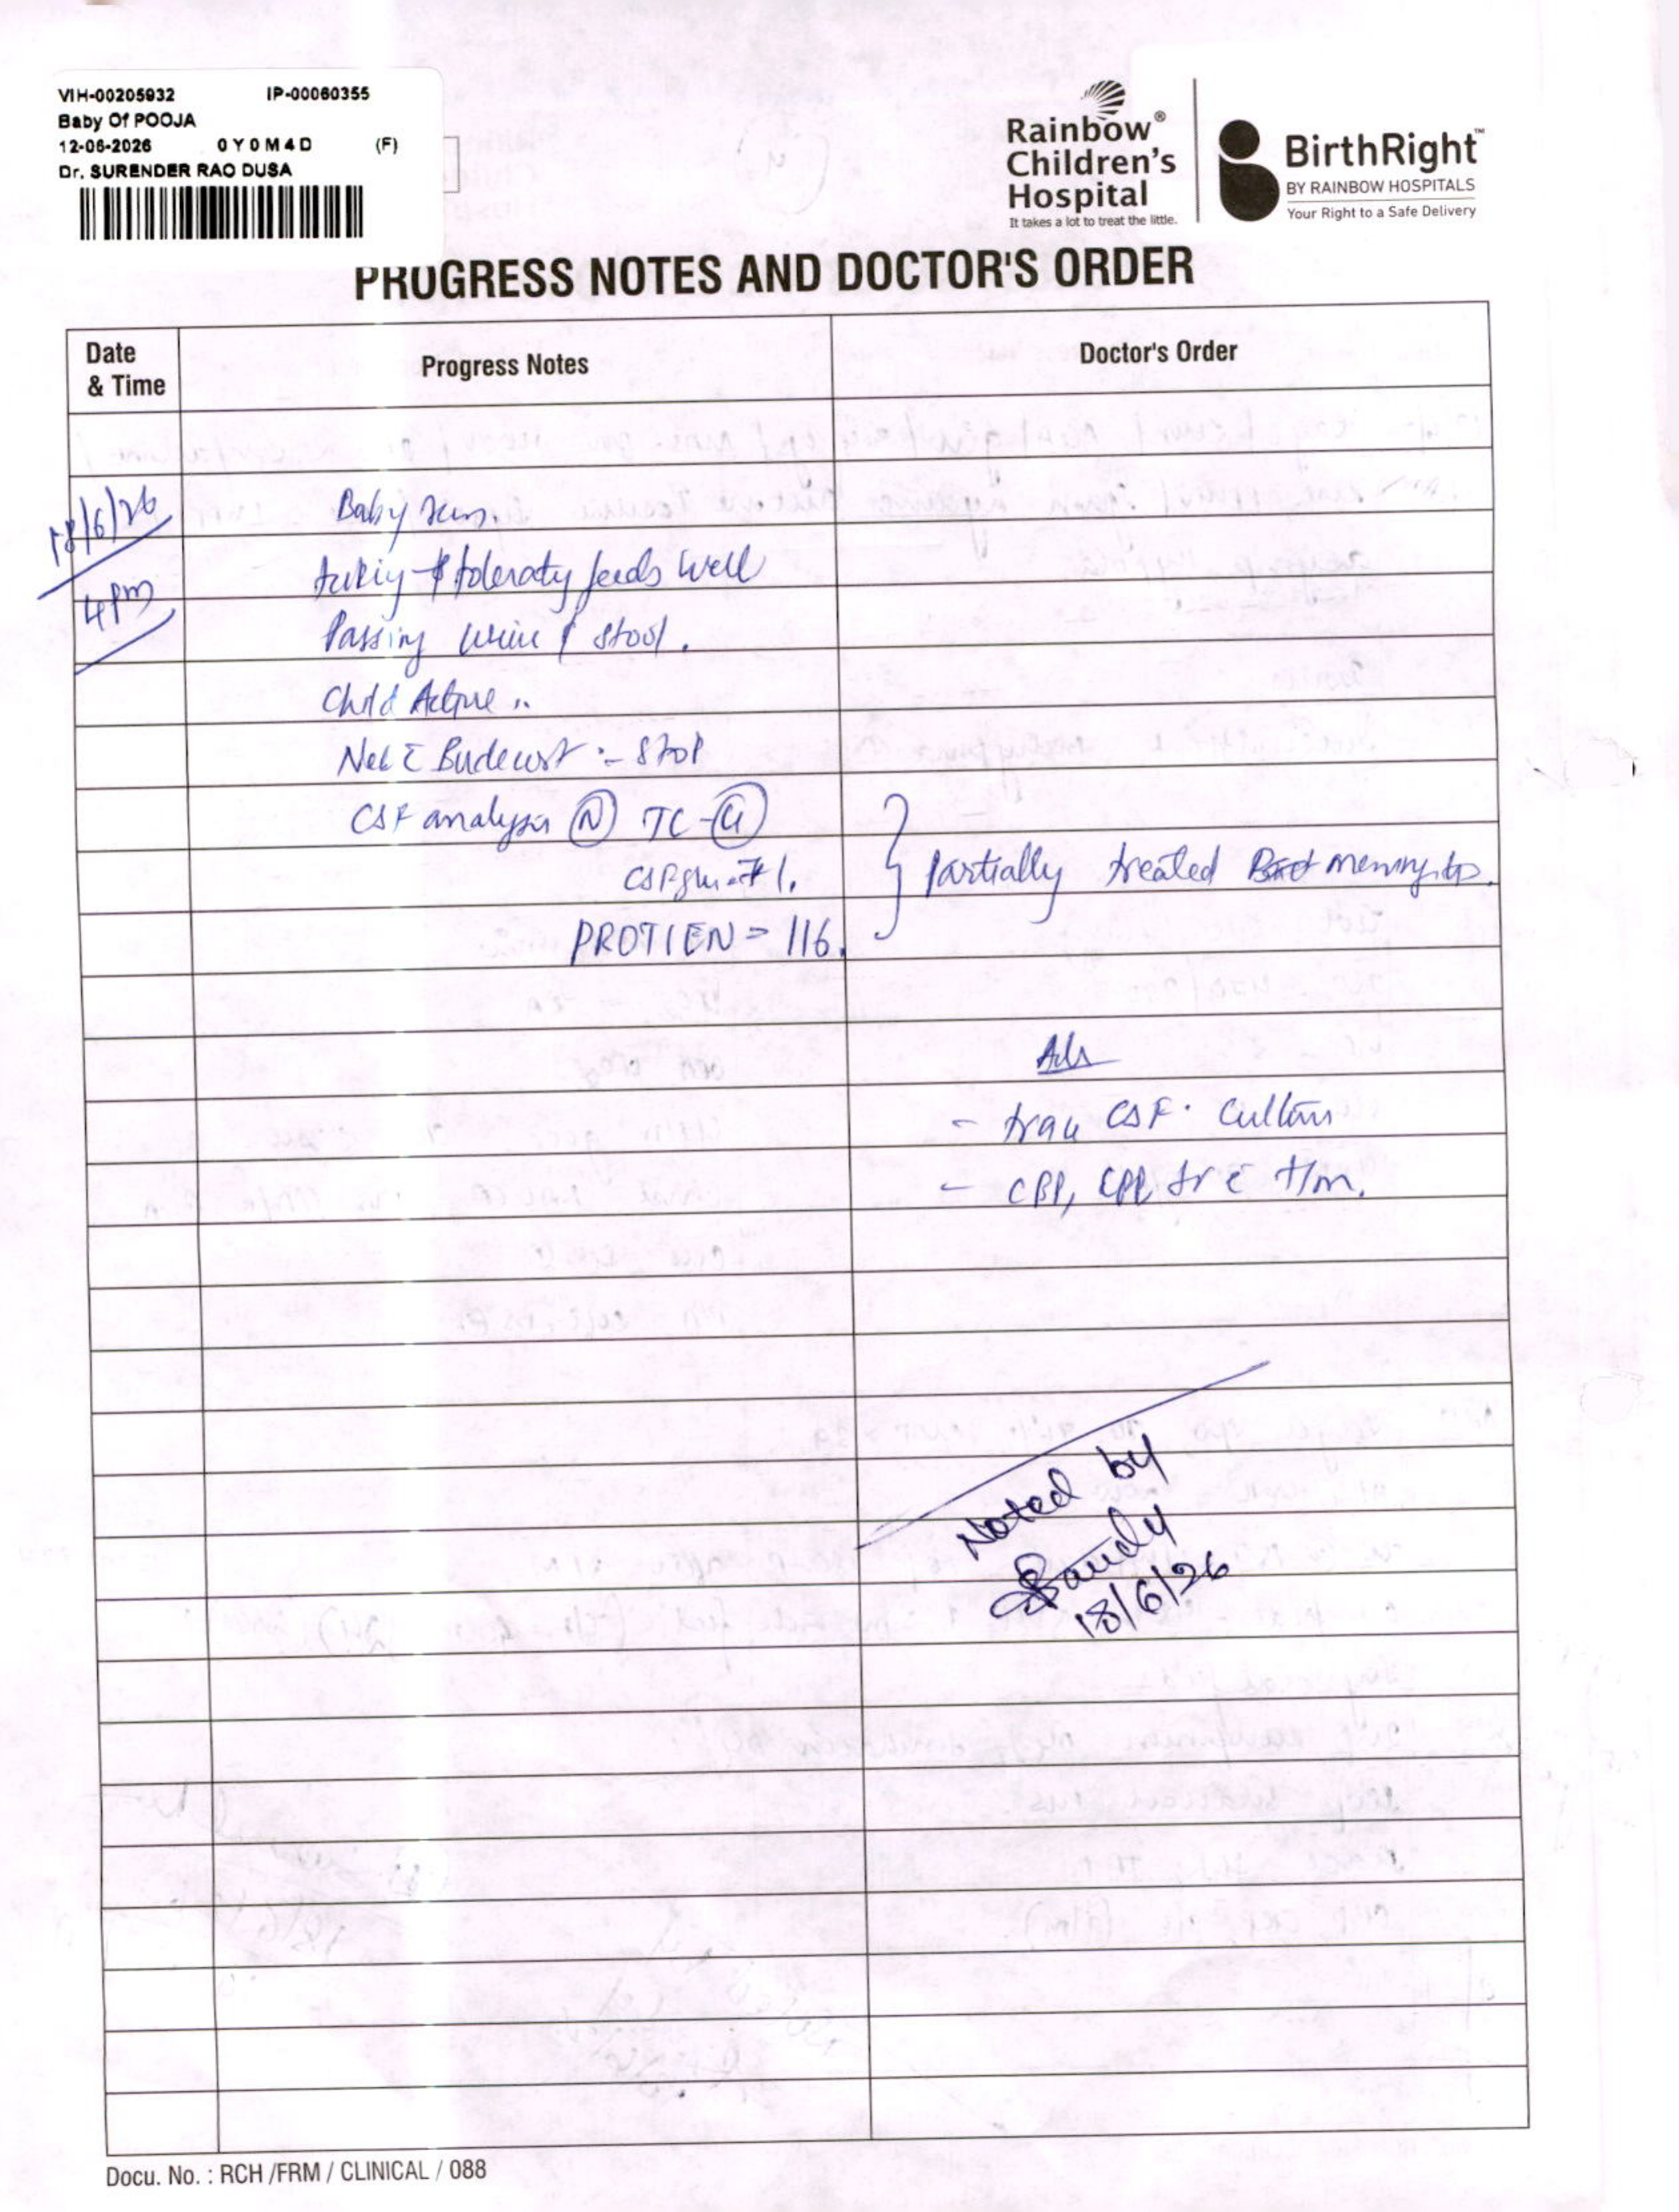 VIH-00205932 IP-00060355
Baby Of POOJA
12-06-2026 0Y0M4D (F)
Dr. SURENDER RAO DUSA
Rainbow®
Children's
Hospital
It takes a lot to treat the little.
BirthRight™
BY RAINBOW HOSPITALS
Your Right to a Safe Delivery
PROGRESS NOTES AND DOCTOR'S ORDER
Date & Time
Progress Notes
Doctor's Order
18/6/26
4 pm
Baby seen.
taking & tolerating feeds well
Passing urine & stool.
Child Active
Neb c̄ Budecort :- Stop
CSF analysis (N) TC -
CSF
PROTIEN = 116.
} Partially treated meningitis.
Adv
- trace CSF. Culture
- CBP,
Noted by
18/6/26
Docu. No. : RCH /FRM / CLINICAL / 088